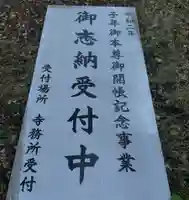 子年御本尊御開帳記念事業
御志納受付中
受付場所 寺務所受付